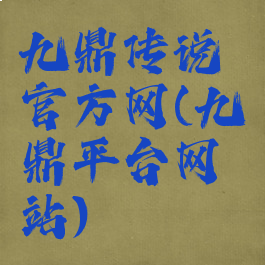 九鼎传说
官方网(九
鼎平台网
站)